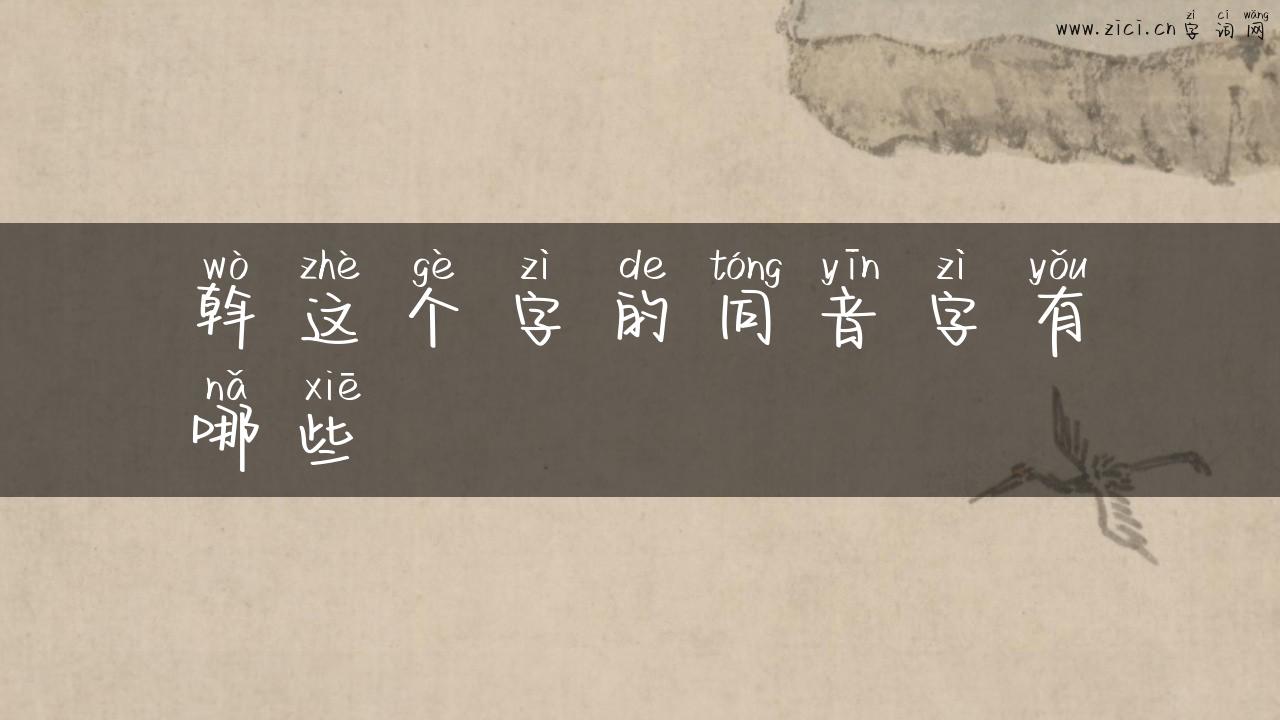 zì cí wǎng
www.zici.cn 字词网
wò zhè gè zì de tóng yīn zì yǒu
斡这个字的同音字有
nǎ xiē
哪些